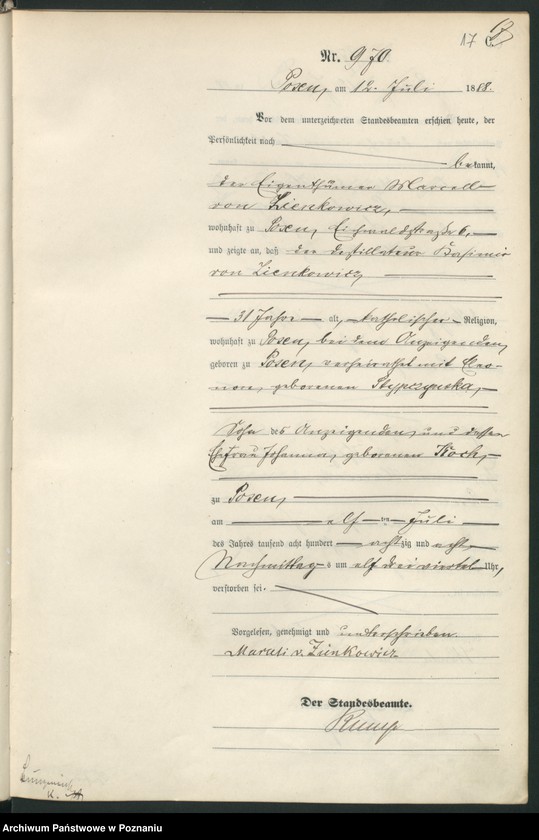 17
Nr. 970.
Posen, am 12. Juli 1888.
Vor dem unterzeichneten Standesbeamten erschien heute, der
Persönlichkeit nach
bekannt,
der Eigenthümer Marcell
von Zienkowicz,
wohnhaft zu Posen, Eichwaldstraße 6,
und zeigte an, daß der Destillateur Casimir
von Zienkowicz
31 Jahre alt, katholischer Religion,
wohnhaft zu Posen, bei dem Anzeigenden,
geboren zu Posen, verheirathet mit Eleo-
nore, geborenen Stypczynska,
Sohn des Anzeigenden, und dessen
Ehefrau Johanna, geborenen Koch,
zu Posen,
am elf ten Juli
des Jahres tausend acht hundert achtzig und acht
Nachmittags um elf drei viertel Uhr,
verstorben sei.
Vorgelesen, genehmigt und unterschrieben.
v. Zienkowicz
Der Standesbeamte.
Archiwum Państwowe w Poznaniu